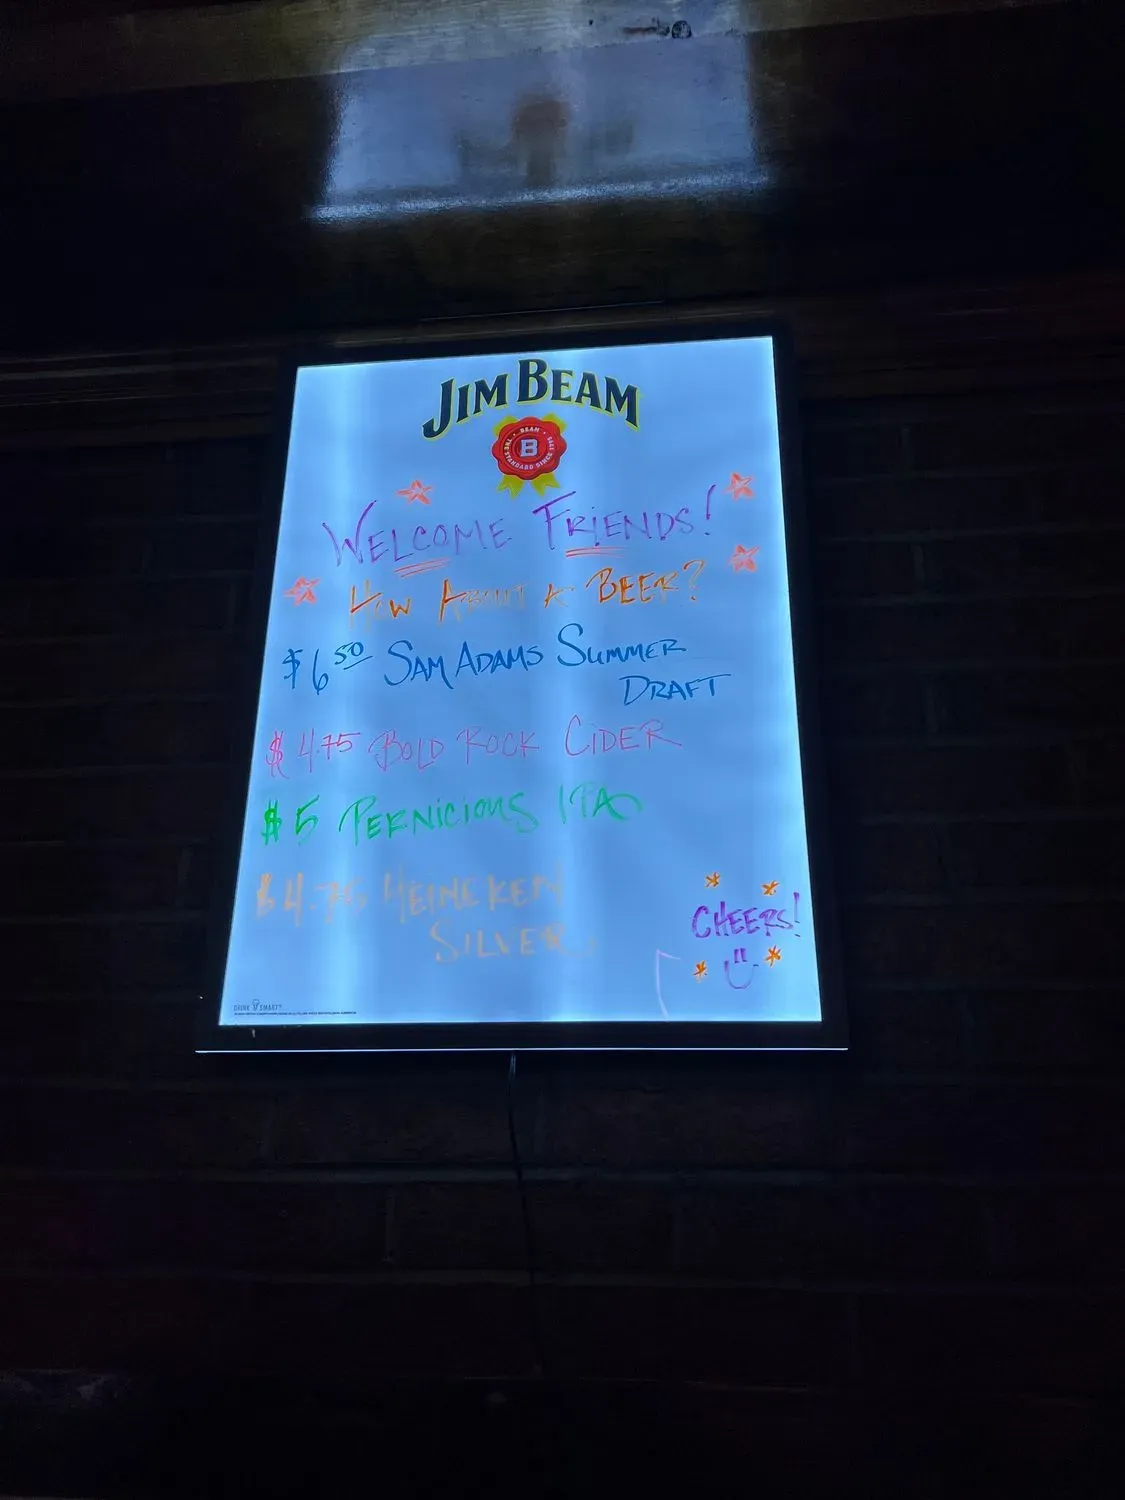 JIM BEAM
THE · BEAM · 1795
B
STANDARD SINCE
WELCOME FRIENDS!
HOW ABOUT A BEER?
$6.50 SAM ADAMS SUMMER
DRAFT
$4.75 BOLD ROCK CIDER
$5 PERNICIOUS IPA
$4.75 HEINEKEN
SILVER
CHEERS!
DRINK SMART®